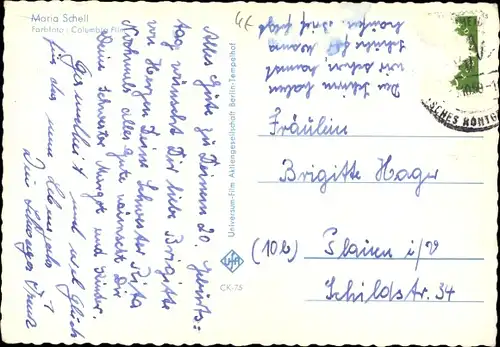 Maria Schell
Farbfoto: Columbia Film
Alles Gute zu Deinem 20. Geburts=
tag wünscht Dir liebe Brigitte
von Herzen Deine Schwester Rita
Nochmals alles gute wünscht Dir
Deine Schwester Margot und Kinder.
Gesundheit und viel Glück
für das neue Lebensjahr
Dein Schwager
Den Schirm haben
wir schon, kannst
Universum-Film Aktiengesellschaft Berlin-Tempelhof
Ufa
CK-75
Fräulein
Brigitte Hager
(10b) Plauen i/V
Schildstr. 34